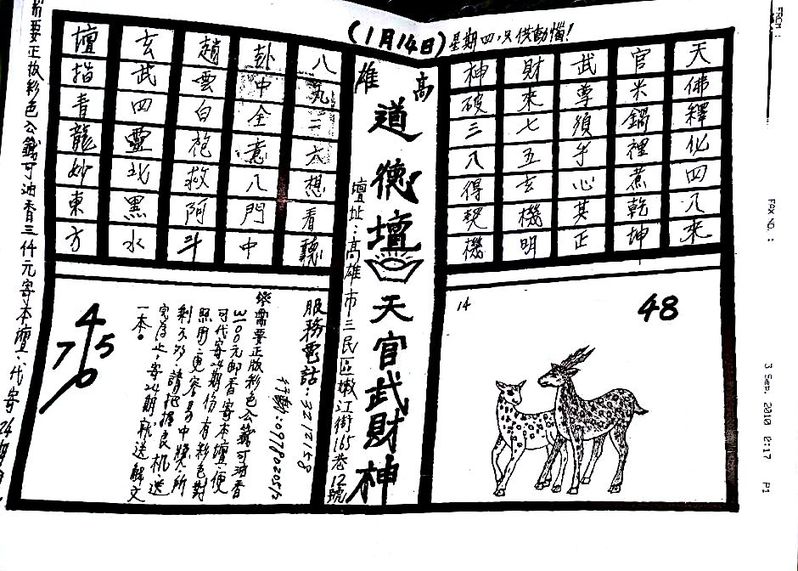 FROM :
FAX NO. :
3 Sep. 2010 0:17 P1
(1月14日)星期四,只供動惱!
天佛釋化四八來
官米鍋裡煮乾坤
武尊須手心其正
財來七五玄機明
神破三八得契機
高雄
道德壇
天官武財神
壇址:高雄市三民區嫩江街165巷12號
八 二太想看聽
卦中全意八門中
趙雲白袍救阿斗
玄武四靈北黑水
壇指青龍妙東方
14
48
服務電話:3212158
行動:
需要正版彩色公籤可油香
3100元郵香寄本壇,便
可代寄24期份有彩色對
照用,更容易中獎,所
剩不多,請把握良機,送
完為止,寄24期就送解文
一本。
4
7 5
0
需要正版彩色公籤可油香三仟元寄本壇,代寄24期